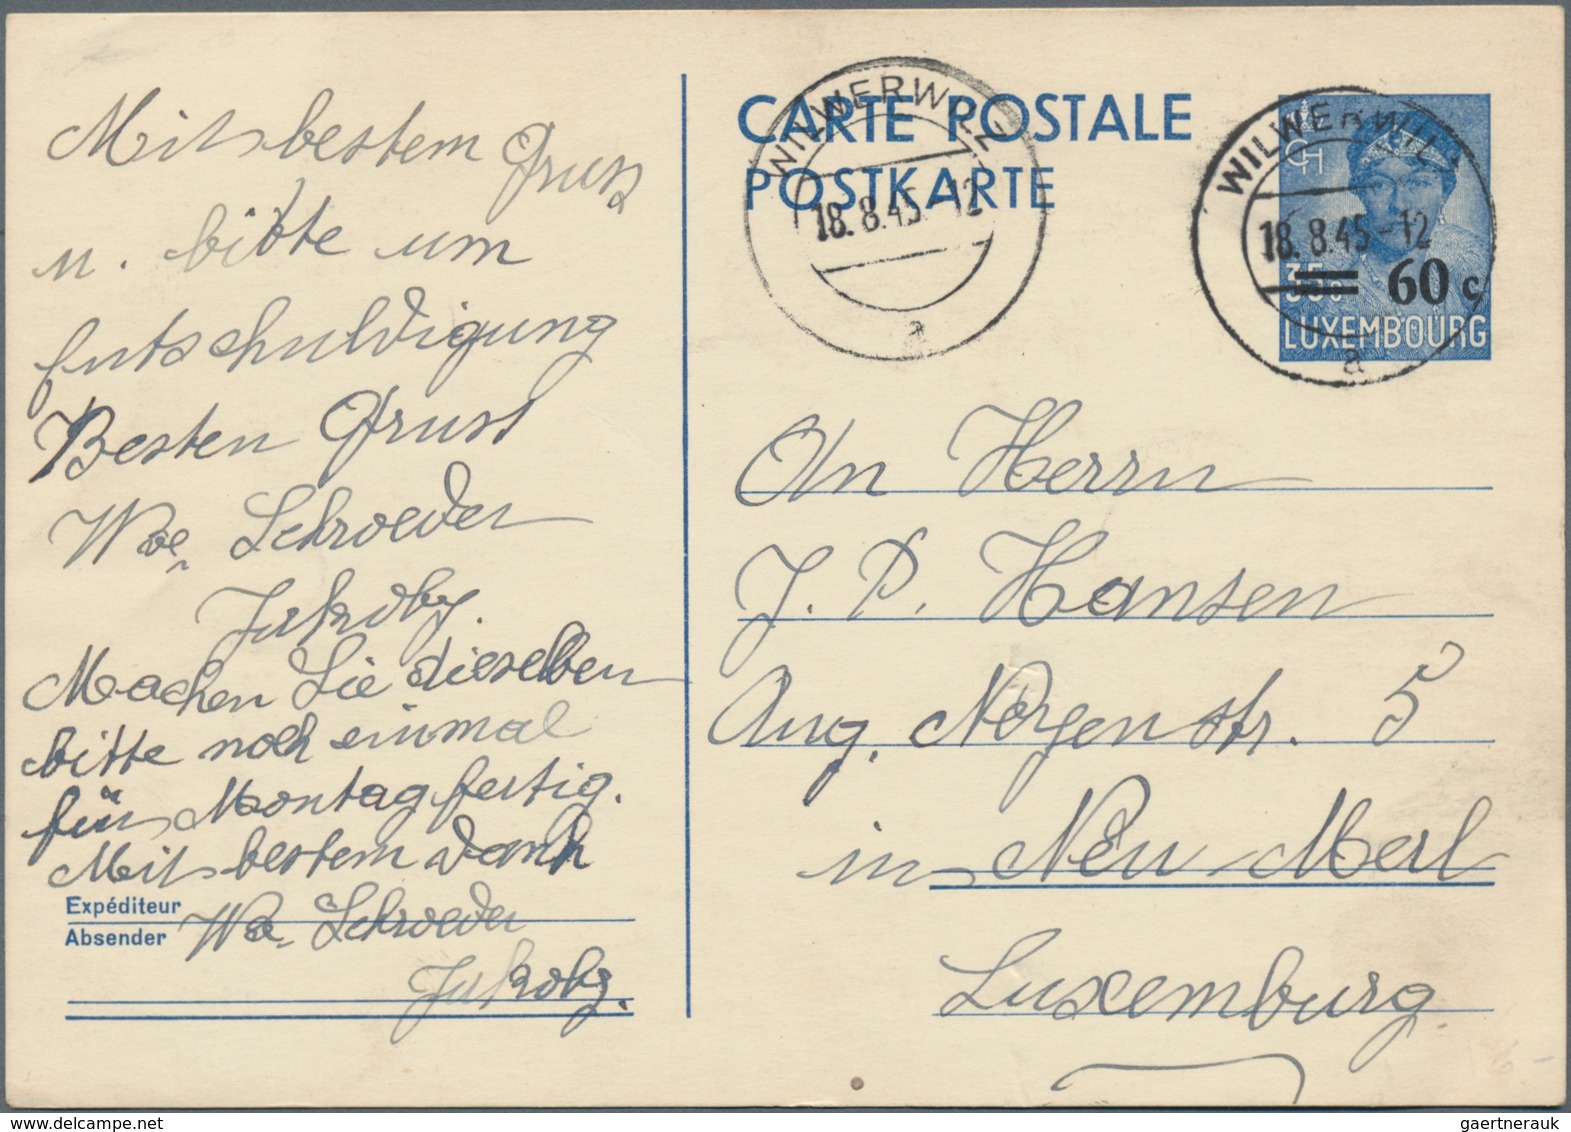 Mit bestem Gruss
u. bitte um
Entschuldigung
Besten Gruss
Wwe Schroeder
Jakoby.
Machen Sie dieselben
bitte noch einmal
für Montag fertig.
Mit bestem Dank
Expéditeur
Absender
Wwe Schroeder
Jakoby.
CARTE POSTALE
POSTKARTE
WILWERWILZ
18.8.45-12
a
WILWERWILZ
18.8.45-12
a
CH
35c 60 c
LUXEMBOURG
An Herrn
J. P. Hansen
Aug. str. 5
in Neu Merl
Luxemburg.
gaertnerauk @ hotmail.com